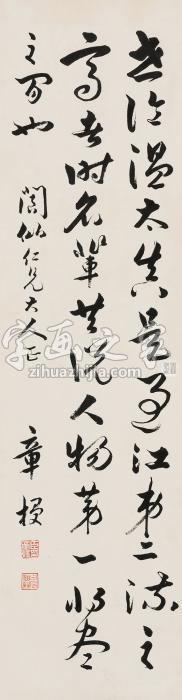 世论温太真是过江第二流之
高者时名辈共说人物第一将尽
之间也
闇仙仁兄大人正
章梫
字画之家
zihuazhijia.com